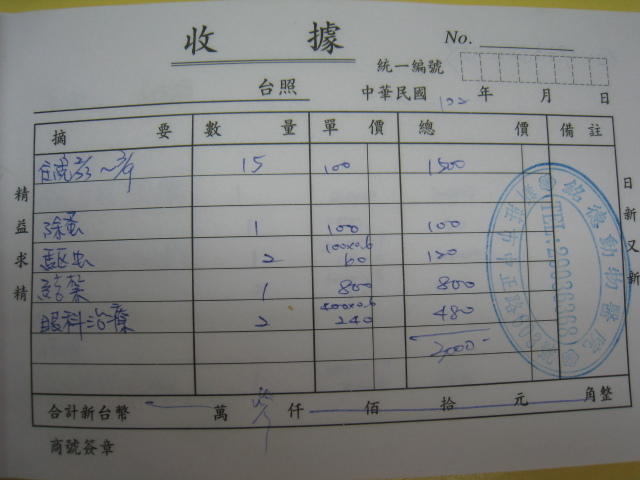 收據
No.
統一編號
台照
中華民國 102 年 月 日
摘要 數量 單價 總價 備註
住院 ~ 3/9 15 100 1500
除蚤 1 100 100
驅虫 2 100x0.6 60 120
1 800 800
眼科治療 2 400x0.6 240 480
合計新台幣 萬 仟 佰 拾 元 角整
商號簽章
精益求精
日新又新
銘德動物醫院